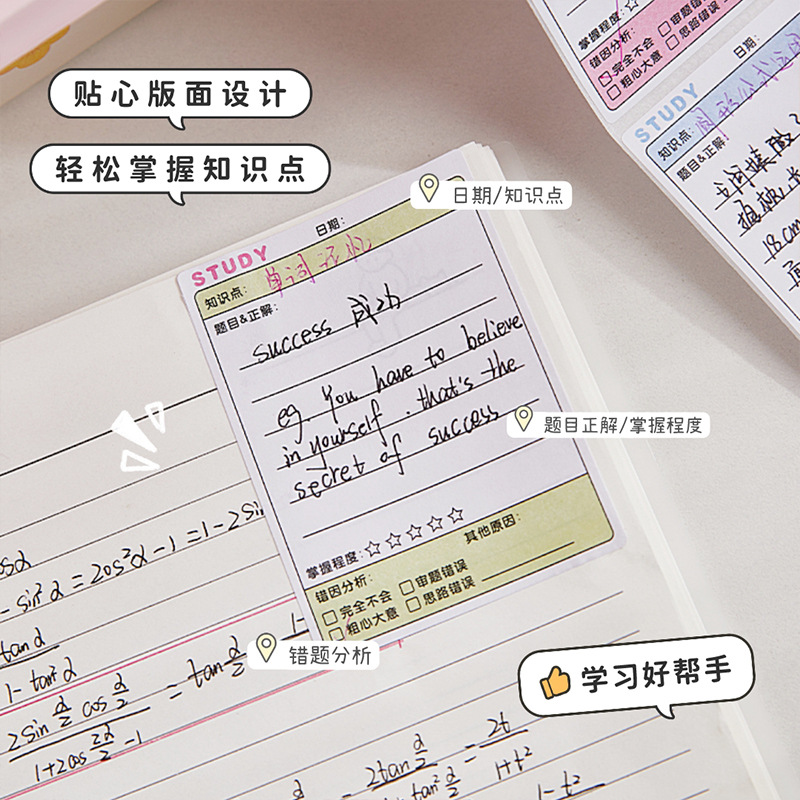 贴心版面设计
轻松掌握知识点
日期/知识点
日期:
STUDY
知识点: 单词
题目&正解:
success 成功
eg. You have to believe
in yourself. that's the
secret of success
题目正解/掌握程度
掌握程度: ☆☆☆☆☆
其他原因:
错因分析:
完全不会 审题错误
粗心大意 思路错误
错题分析
学习好帮手
掌握程度: ☆
错因分析:
完全不会 审题错误
粗心大意 思路错误
STUDY
日期:
知识点:
题目&正解:
18cm
= 2cos²α - 1 = 1 - 2sin
tan α
1 - tan² α
2sin α/2 cos α/2
= tan α/2
2tan α/2
= 2t
1+t²
1-t²